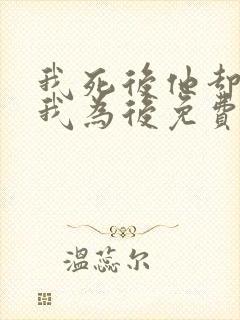 我死後他却
我為後免費
溫蕊尔